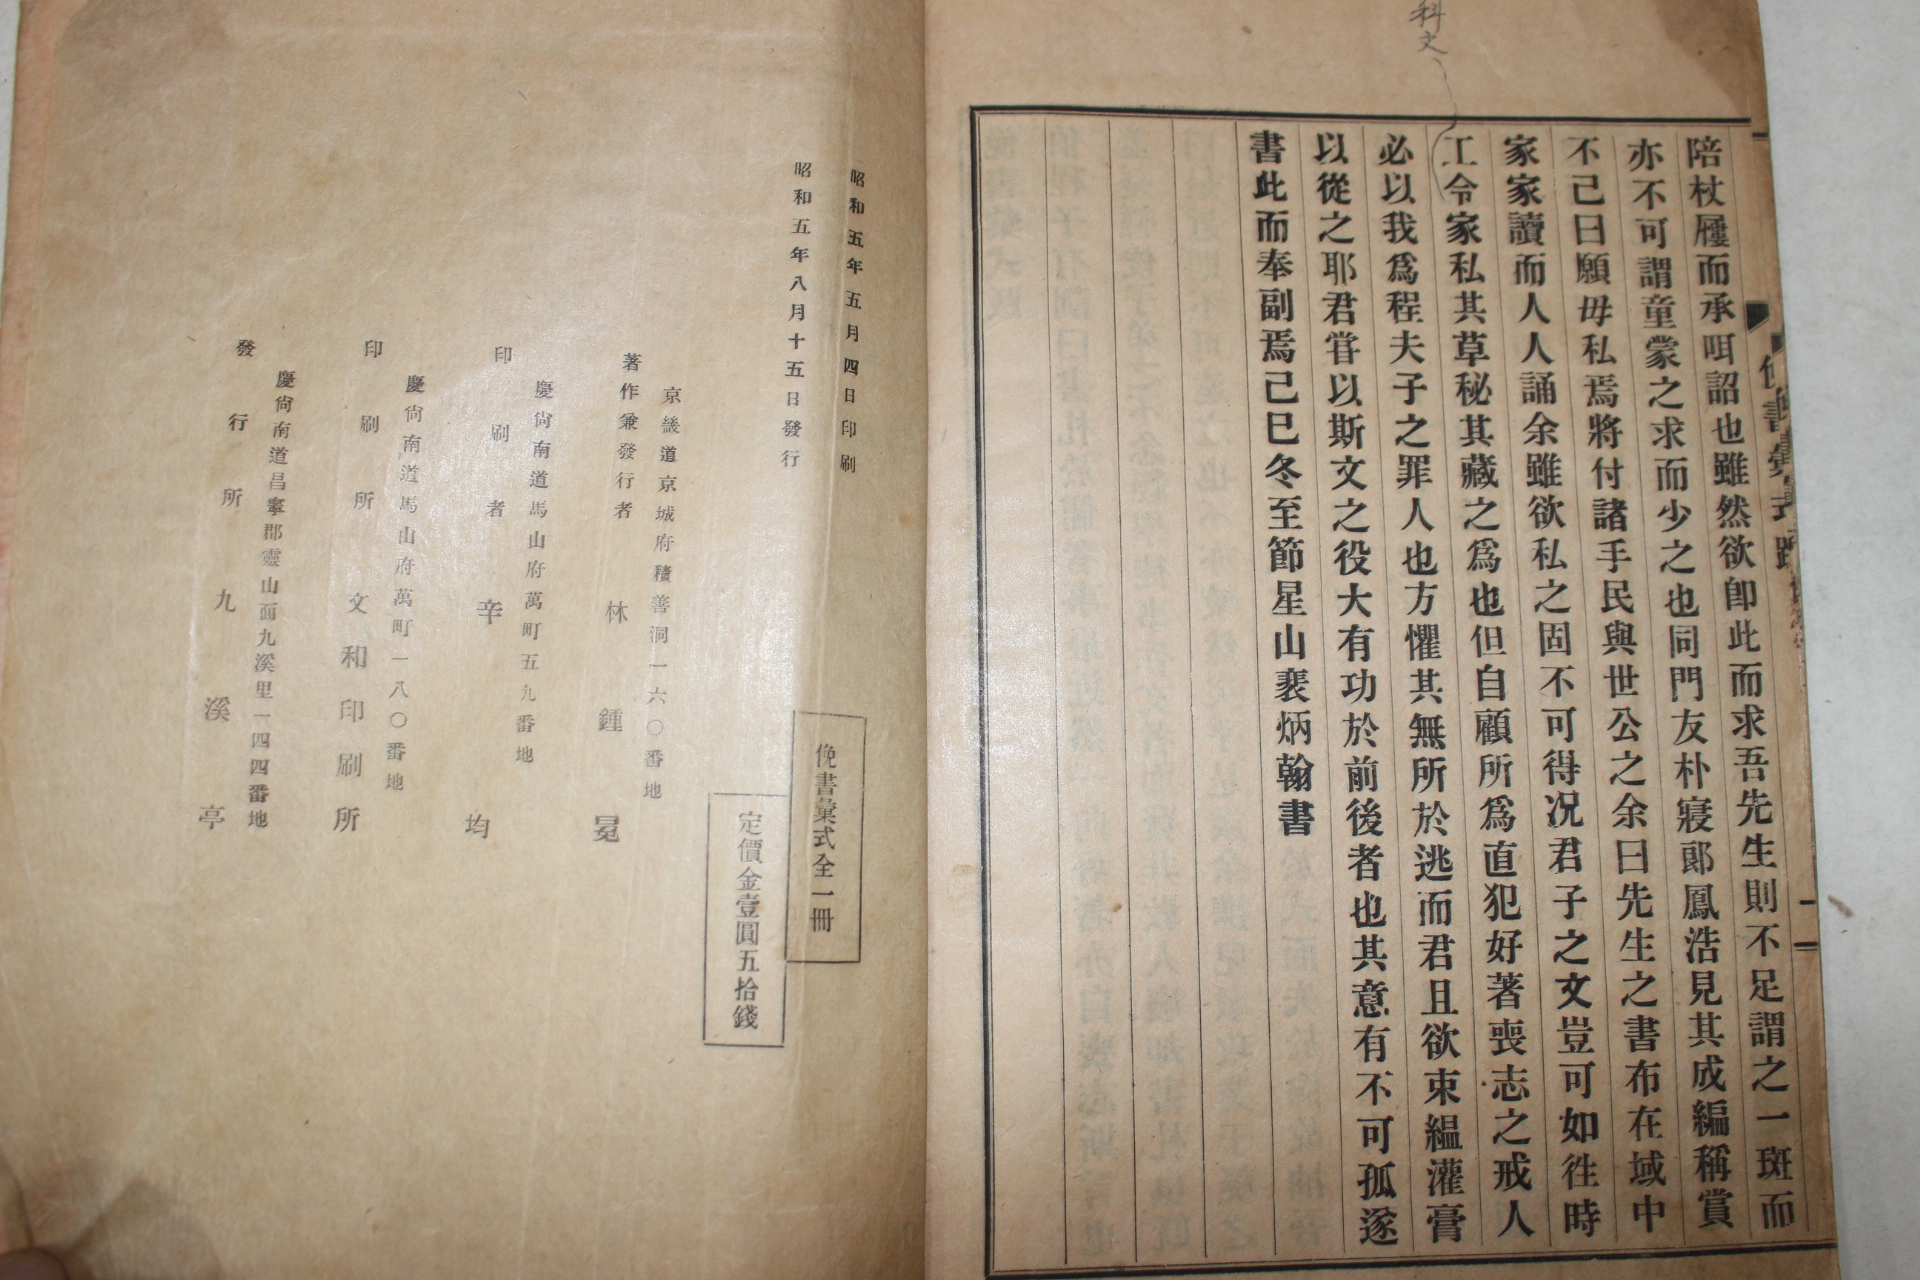 科文
俛書彙式跋
陪杖屨而承呬詔也雖然欲卽此而求吾先生則不足謂之一斑而
亦不可謂童蒙之求而少之也同門友朴寢郞鳳浩見其成編稱賞
不已曰願毋私焉將付諸手民與世公之余曰先生之書布在域中
家家讀而人人誦余雖欲私之固不可得况君子之文豈可如徃時
工令家私其草秘其藏之爲也但自顧所爲直犯好著喪志之戒人
必以我爲程夫子之罪人也方懼其無所於逃而君且欲束緼灌膏
以從之耶君甞以斯文之役大有功於前後者也其意有不可孤遂
書此而奉副焉己巳冬至節星山裵炳翰書
昭和五年五月四日印刷
昭和五年八月十五日發行
俛書彙式全一冊
定價金壹圓五拾錢
京畿道京城府積善洞一六〇番地
著作兼發行者 林鍾冕
慶尙南道馬山府萬町五九番地
印刷者 辛均
慶尙南道馬山府萬町一八〇番地
印刷所 文和印刷所
慶尙南道昌寧郡靈山面九溪里一四四番地
發行所 九溪亭